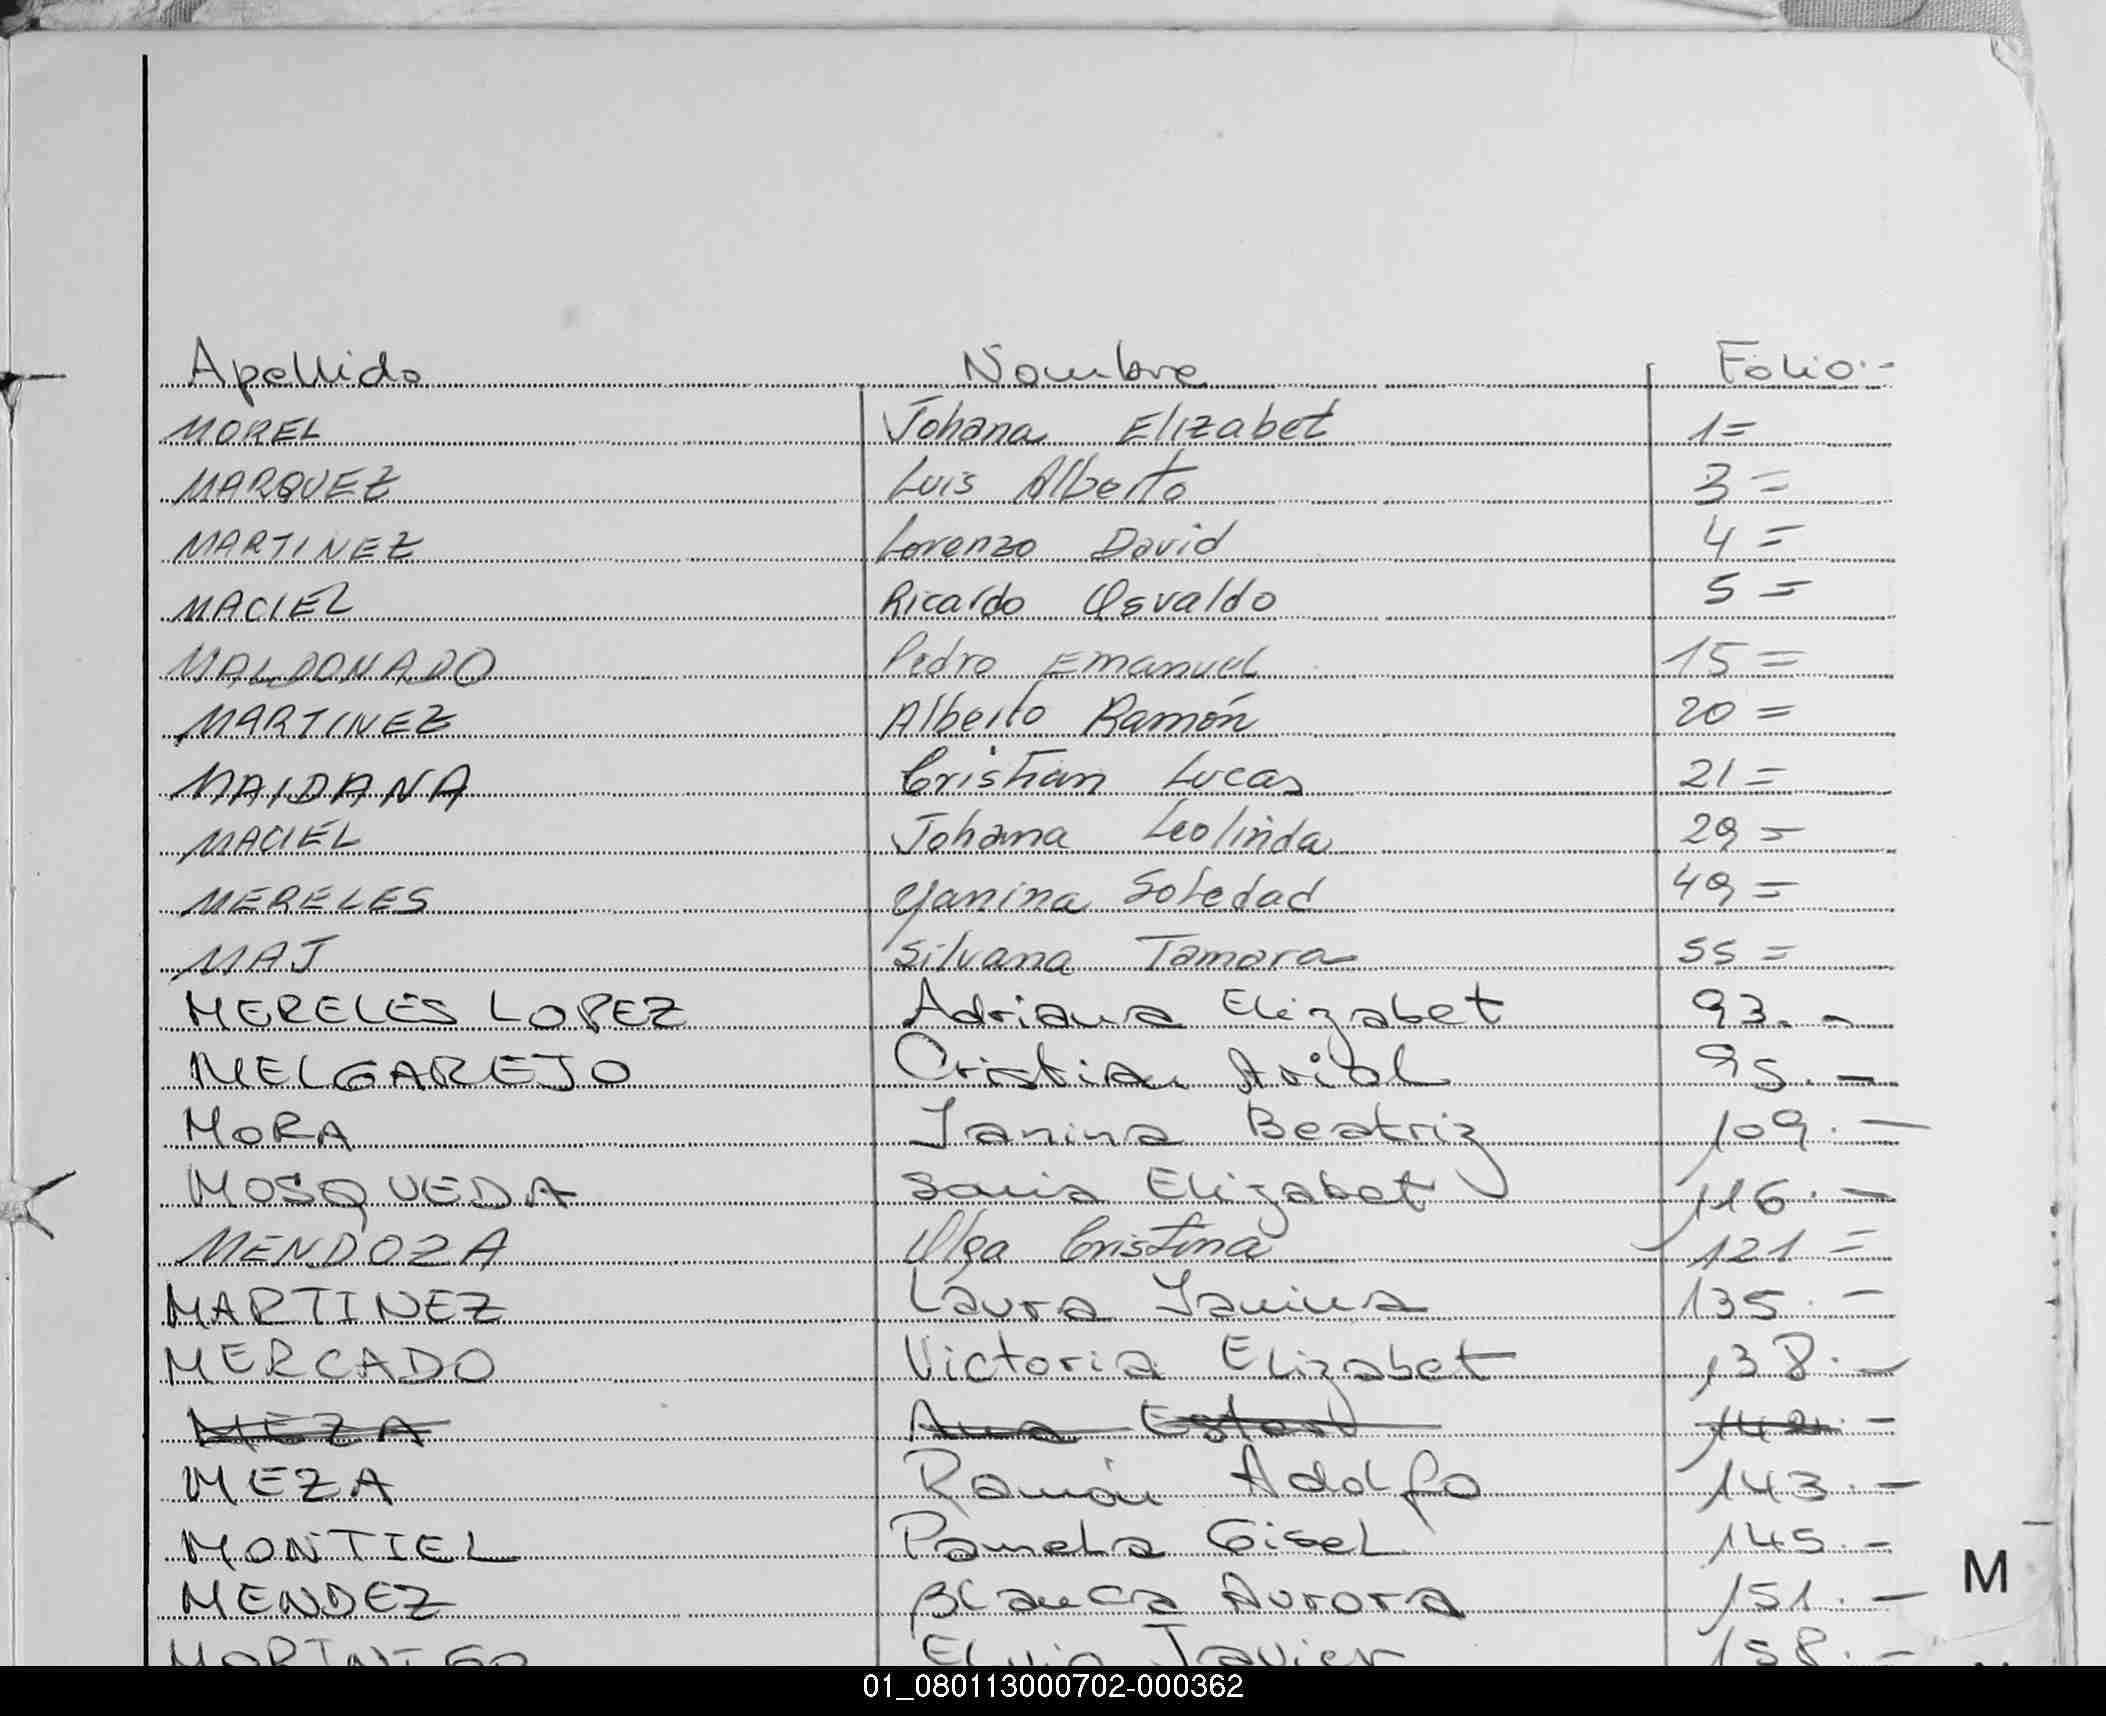 Apellido Nombre Folio.-
MOREL Johana Elizabet 1=
MARQUEZ Luis Alberto 3=
MARTINEZ Lorenzo David 4=
MACIEL Ricardo Osvaldo 5=
MALDONADO Pedro Emanuel 15=
MARTINEZ Alberto Ramón 20=
MAIDANA Cristian Lucas 21=
MACIEL Johana Leolinda 29=
MERELES Yanina Soledad 49=
MAJ Silvana Tamara 55=
MERELES LOPEZ Adriana Elizabet 93.-
MELGAREJO Cristian Ariel 95.-
MORA Yanina Beatriz 109.-
MOSQUEDA Sonia Elizabet 116.-
MENDOZA Olga Cristina 121=
MARTINEZ Laura Yanina 135.-
MERCADO Victoria Elizabet 138.-
MEZA Ana Ester 142.-
MEZA Ramón Adolfo 143.-
MONTIEL Pamela Gisel 145.-
MENDEZ Blanca Aurora 151.-
M
MORINIGO Elvio Javier 158.-
01_080113000702-000362